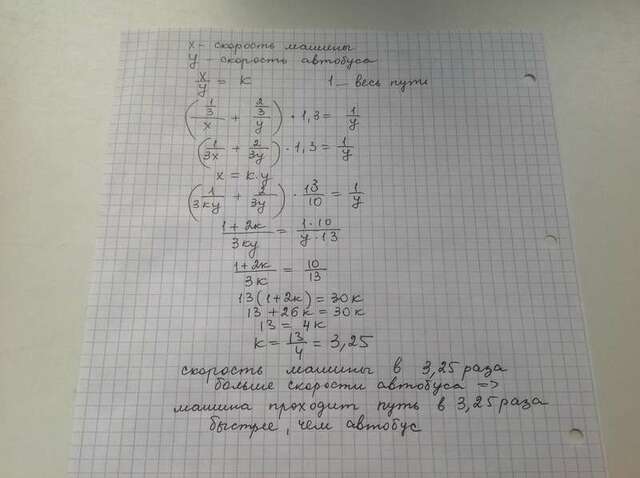 x - скорость машины
y - скорость автобуса
x/y = к 1 - весь путь
((1/3)/x + (2/3)/y) · 1,3 = 1/y
(1/3x + 2/3y) · 1,3 = 1/y
x = к·y
(1/3кy + 2/3y) · 13/10 = 1/y
(1+2к)/3кy = (1·10)/(y·13)
(1+2к)/3к = 10/13
13(1+2к) = 30к
13 + 26к = 30к
13 = 4к
к = 13/4 = 3,25
скорость машины в 3,25 раза
больше скорости автобуса =>
машина проходит путь в 3,25 раза
быстрее, чем автобус